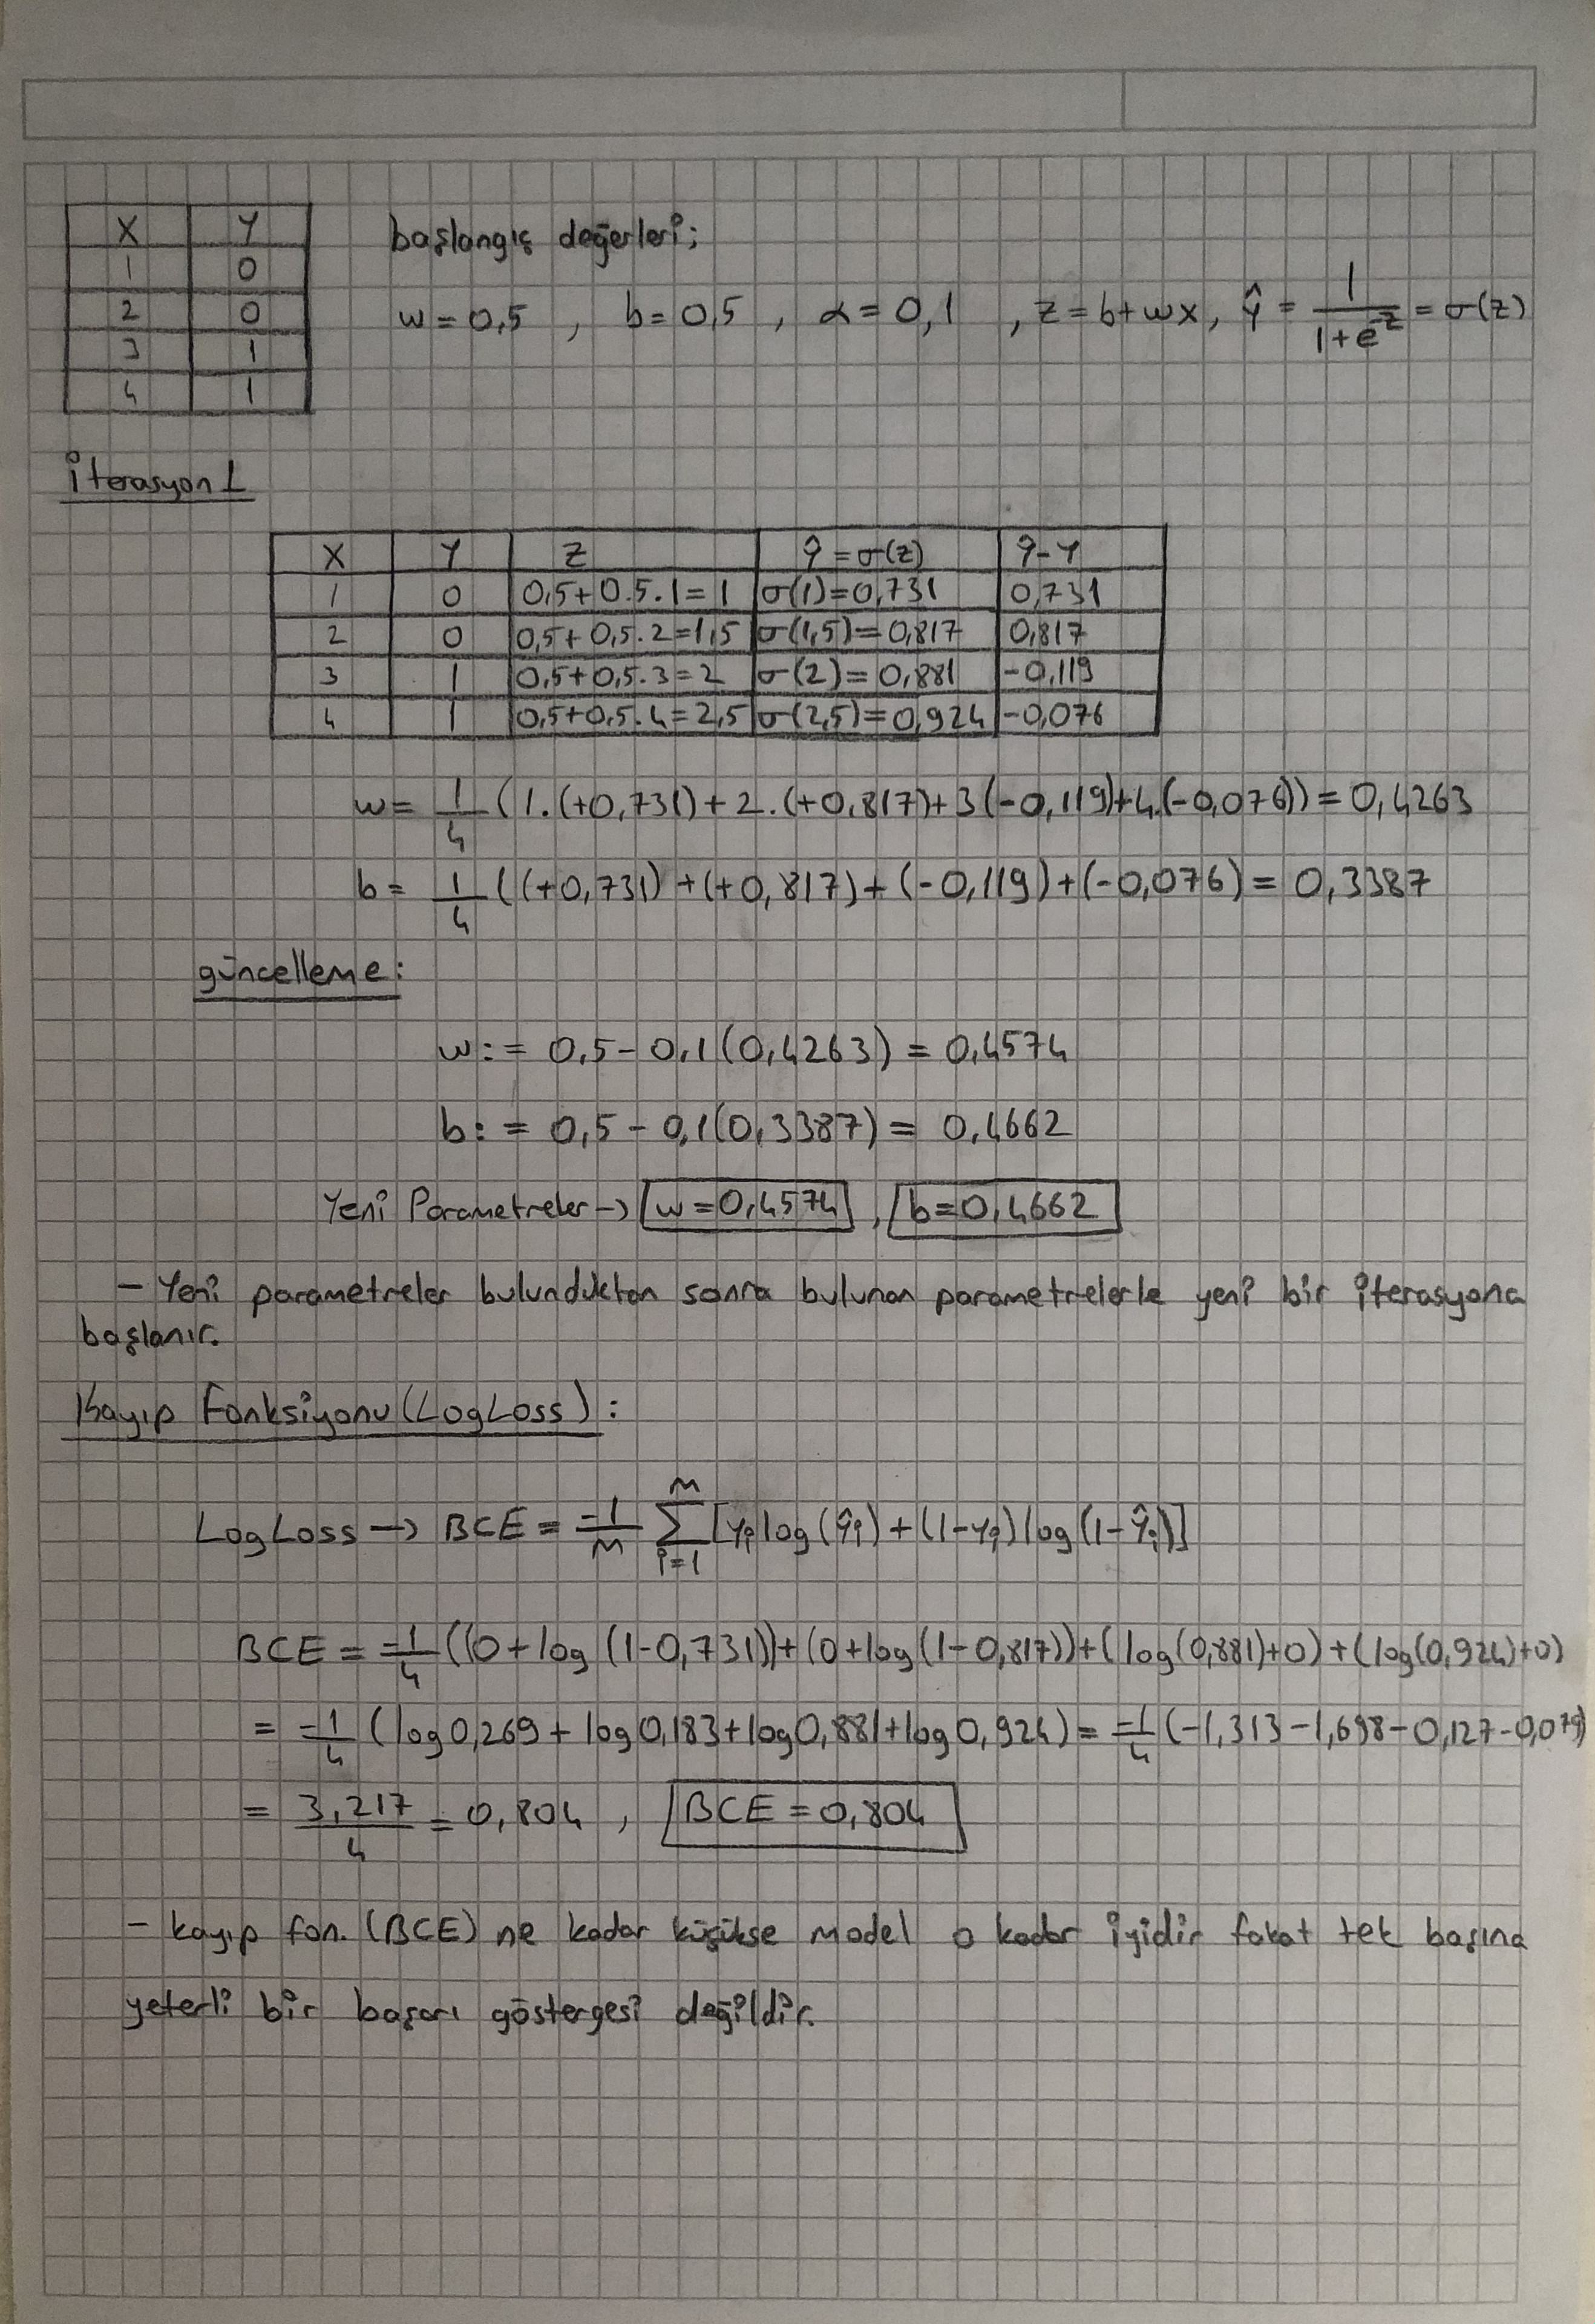 X Y
1 0
2 0
3 1
4 1
başlangıç değerleri;
w=0,5 , b=0,5 , α=0,1 , z=b+wx, ŷ = 1/(1+e^-z) = σ(z)
İterasyon 1
X Y Z ŷ=σ(z) ŷ-y
1 0 0,5+0.5.1=1 σ(1)=0,731 0,731
2 0 0,5+0,5.2=1,5 σ(1,5)=0,817 0,817
3 1 0,5+0,5.3=2 σ(2)=0,881 -0,119
4 1 0,5+0,5.4=2,5 σ(2,5)=0,924 -0,076
w= 1/4 (1.(+0,731)+2.(+0,817)+3(-0,119)+4.(-0,076))=0,4263
b= 1/4 ((+0,731)+(+0,817)+(-0,119)+(-0,076)= 0,3387
güncelleme:
w:= 0,5-0,1(0,4263) = 0,4574
b:= 0,5-0,1(0,3387) = 0,4662
Yeni Parametreler→ w=0,4574 , b=0,4662
- Yeni parametreler bulunduktan sonra bulunan parametrelerle yeni bir iterasyona
başlanır.
Kayıp Fonksiyonu(LogLoss):
LogLoss → BCE = -1/m Σ_{i=1}^{m} [yi log(ŷi)+(1-yi)log(1-ŷi)]
BCE = -1/4 ((0+log(1-0,731))+(0+log(1-0,817))+(log(0,881)+0)+(log(0,924)+0)
= -1/4 (log0,269+log0,183+log0,881+log0,924)= -1/4 (-1,313-1,698-0,127-0,079)
= 3,217/4 = 0,804 , BCE=0,804
- kayıp fon. (BCE) ne kadar küçükse model o kadar iyidir fakat tek başına
yeterli bir başarı göstergesi değildir.